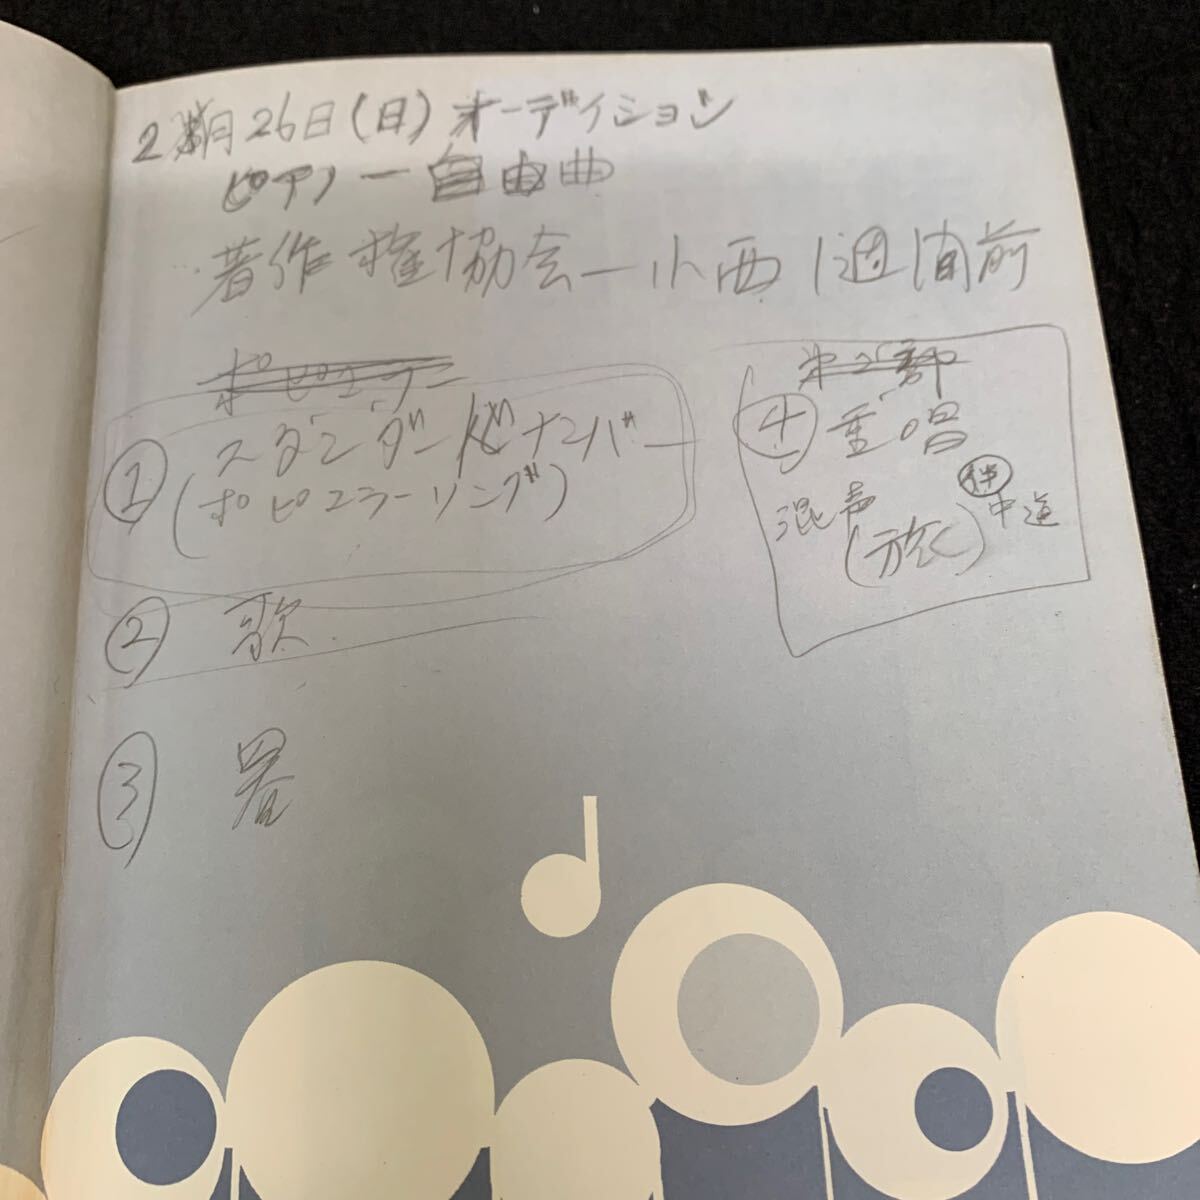 2月26日(日)オーディション
ピアノー自由曲
著作権協会ー小西 1週間前
ポピュラー
① スタンダードナンバー
(ポピュラーソング)
② 歌
③
第2部
④ 重唱
混声 (旅) 伴 中道